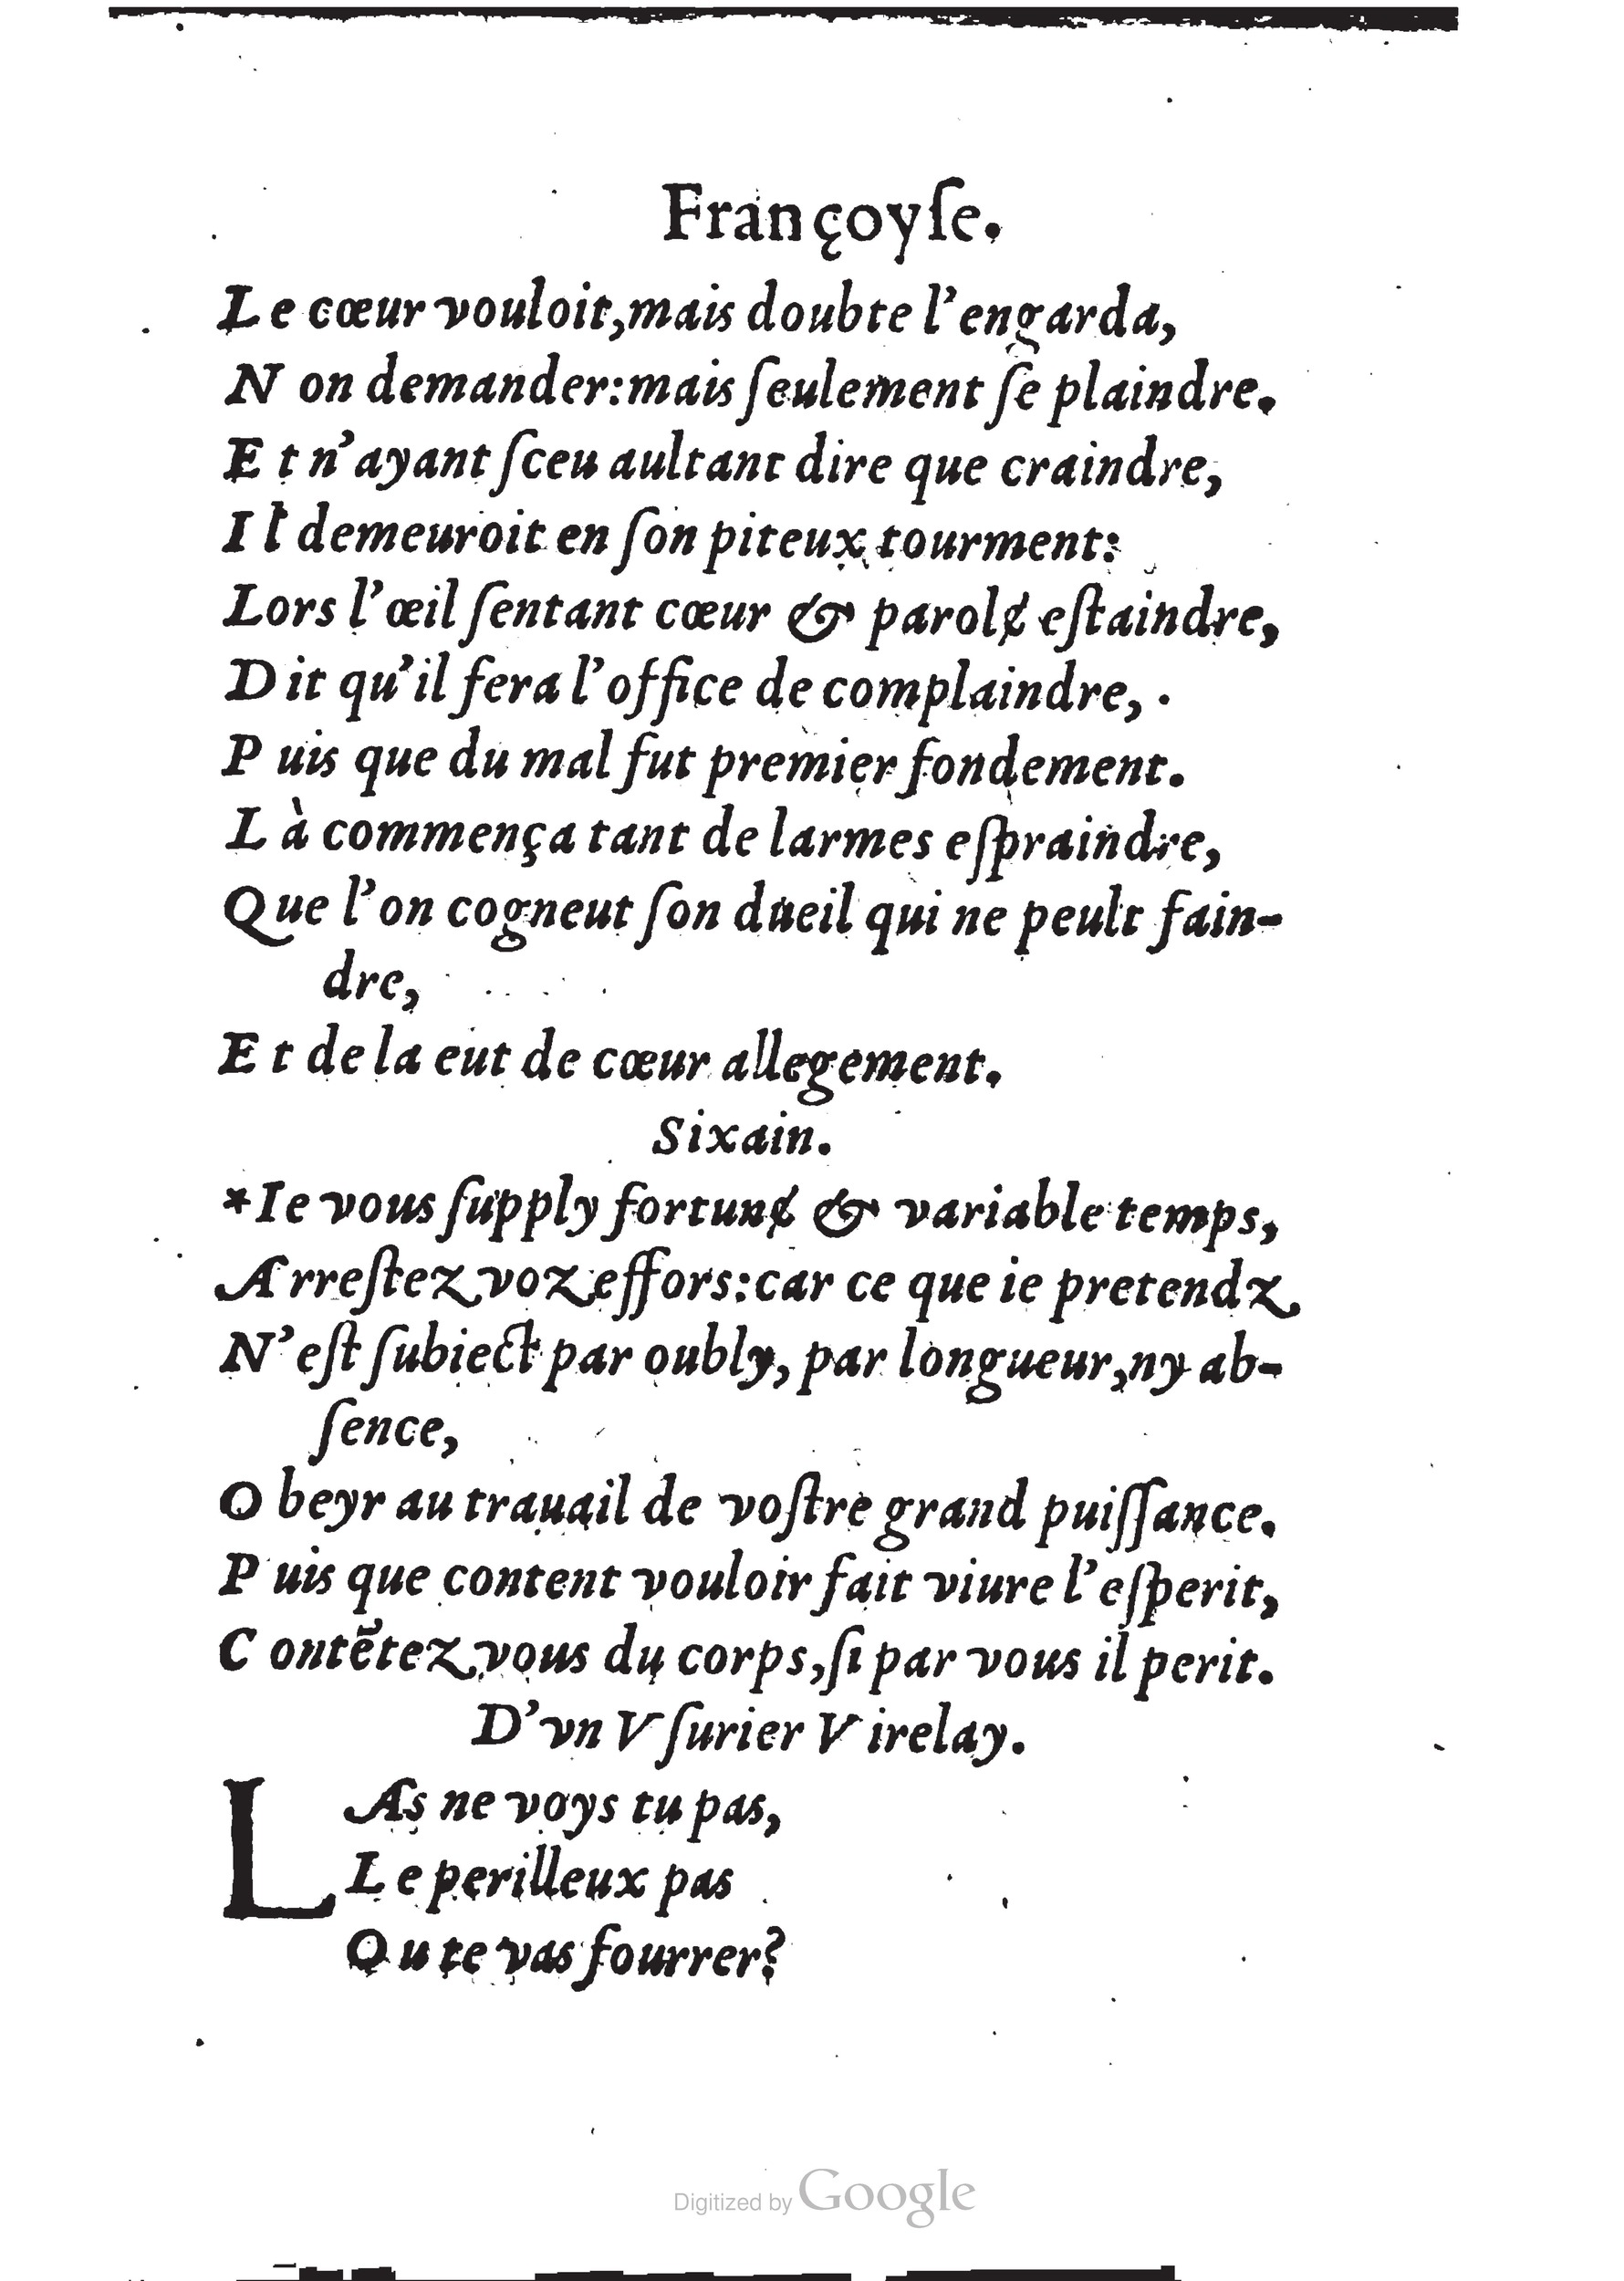 Françoyſe.
Le cœur vouloit,mais doubte l’engarda,
Non demander:mais ſeulement ſe plaindre.
Et n’ayant ſceu aultant dire que craindre,
Il demeuroit en ſon piteux tourment:
Lors l’œil ſentant cœur & parolɇ eſtaindre,
Dit qu’il fera l’office de complaindre,
Puis que du mal fut premier fondement.
Là commença tant de larmes eſpraindre,
Que l’on cogneut ſon dueil qui ne peult fain-
dre,
Et de la eut de cœur allegement.
Sixain.
*Ie vous ſupply fortunɇ & variable temps,
Arreſtez voz effors:car ce que ie pretendz
N’eſt ſubiect par oubly, par longueur,ny ab-
ſence,
Obeyr au trauail de voſtre grand puiſſance.
Puis que content vouloir fait viure l’eſperit,
Contẽtez vous du corps,ſi par vous il perit.
D’vn Vſurier Virelay.
LAs ne voys tu pas,
Le perilleux pas
Ou te vas fourrer?
Digitized by Google